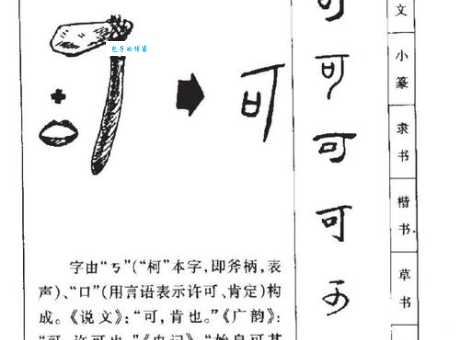 可
可
文
可
小篆
可
隶书
可
楷书
可
草书
字由“丂”(“柯”本字,即斧柄,表
声)、“口”(用言语表示许可、肯定)构
成。《说文》:“可,肯也。”《广韵》:
“可,许可也。”《史记》:“始皇可其